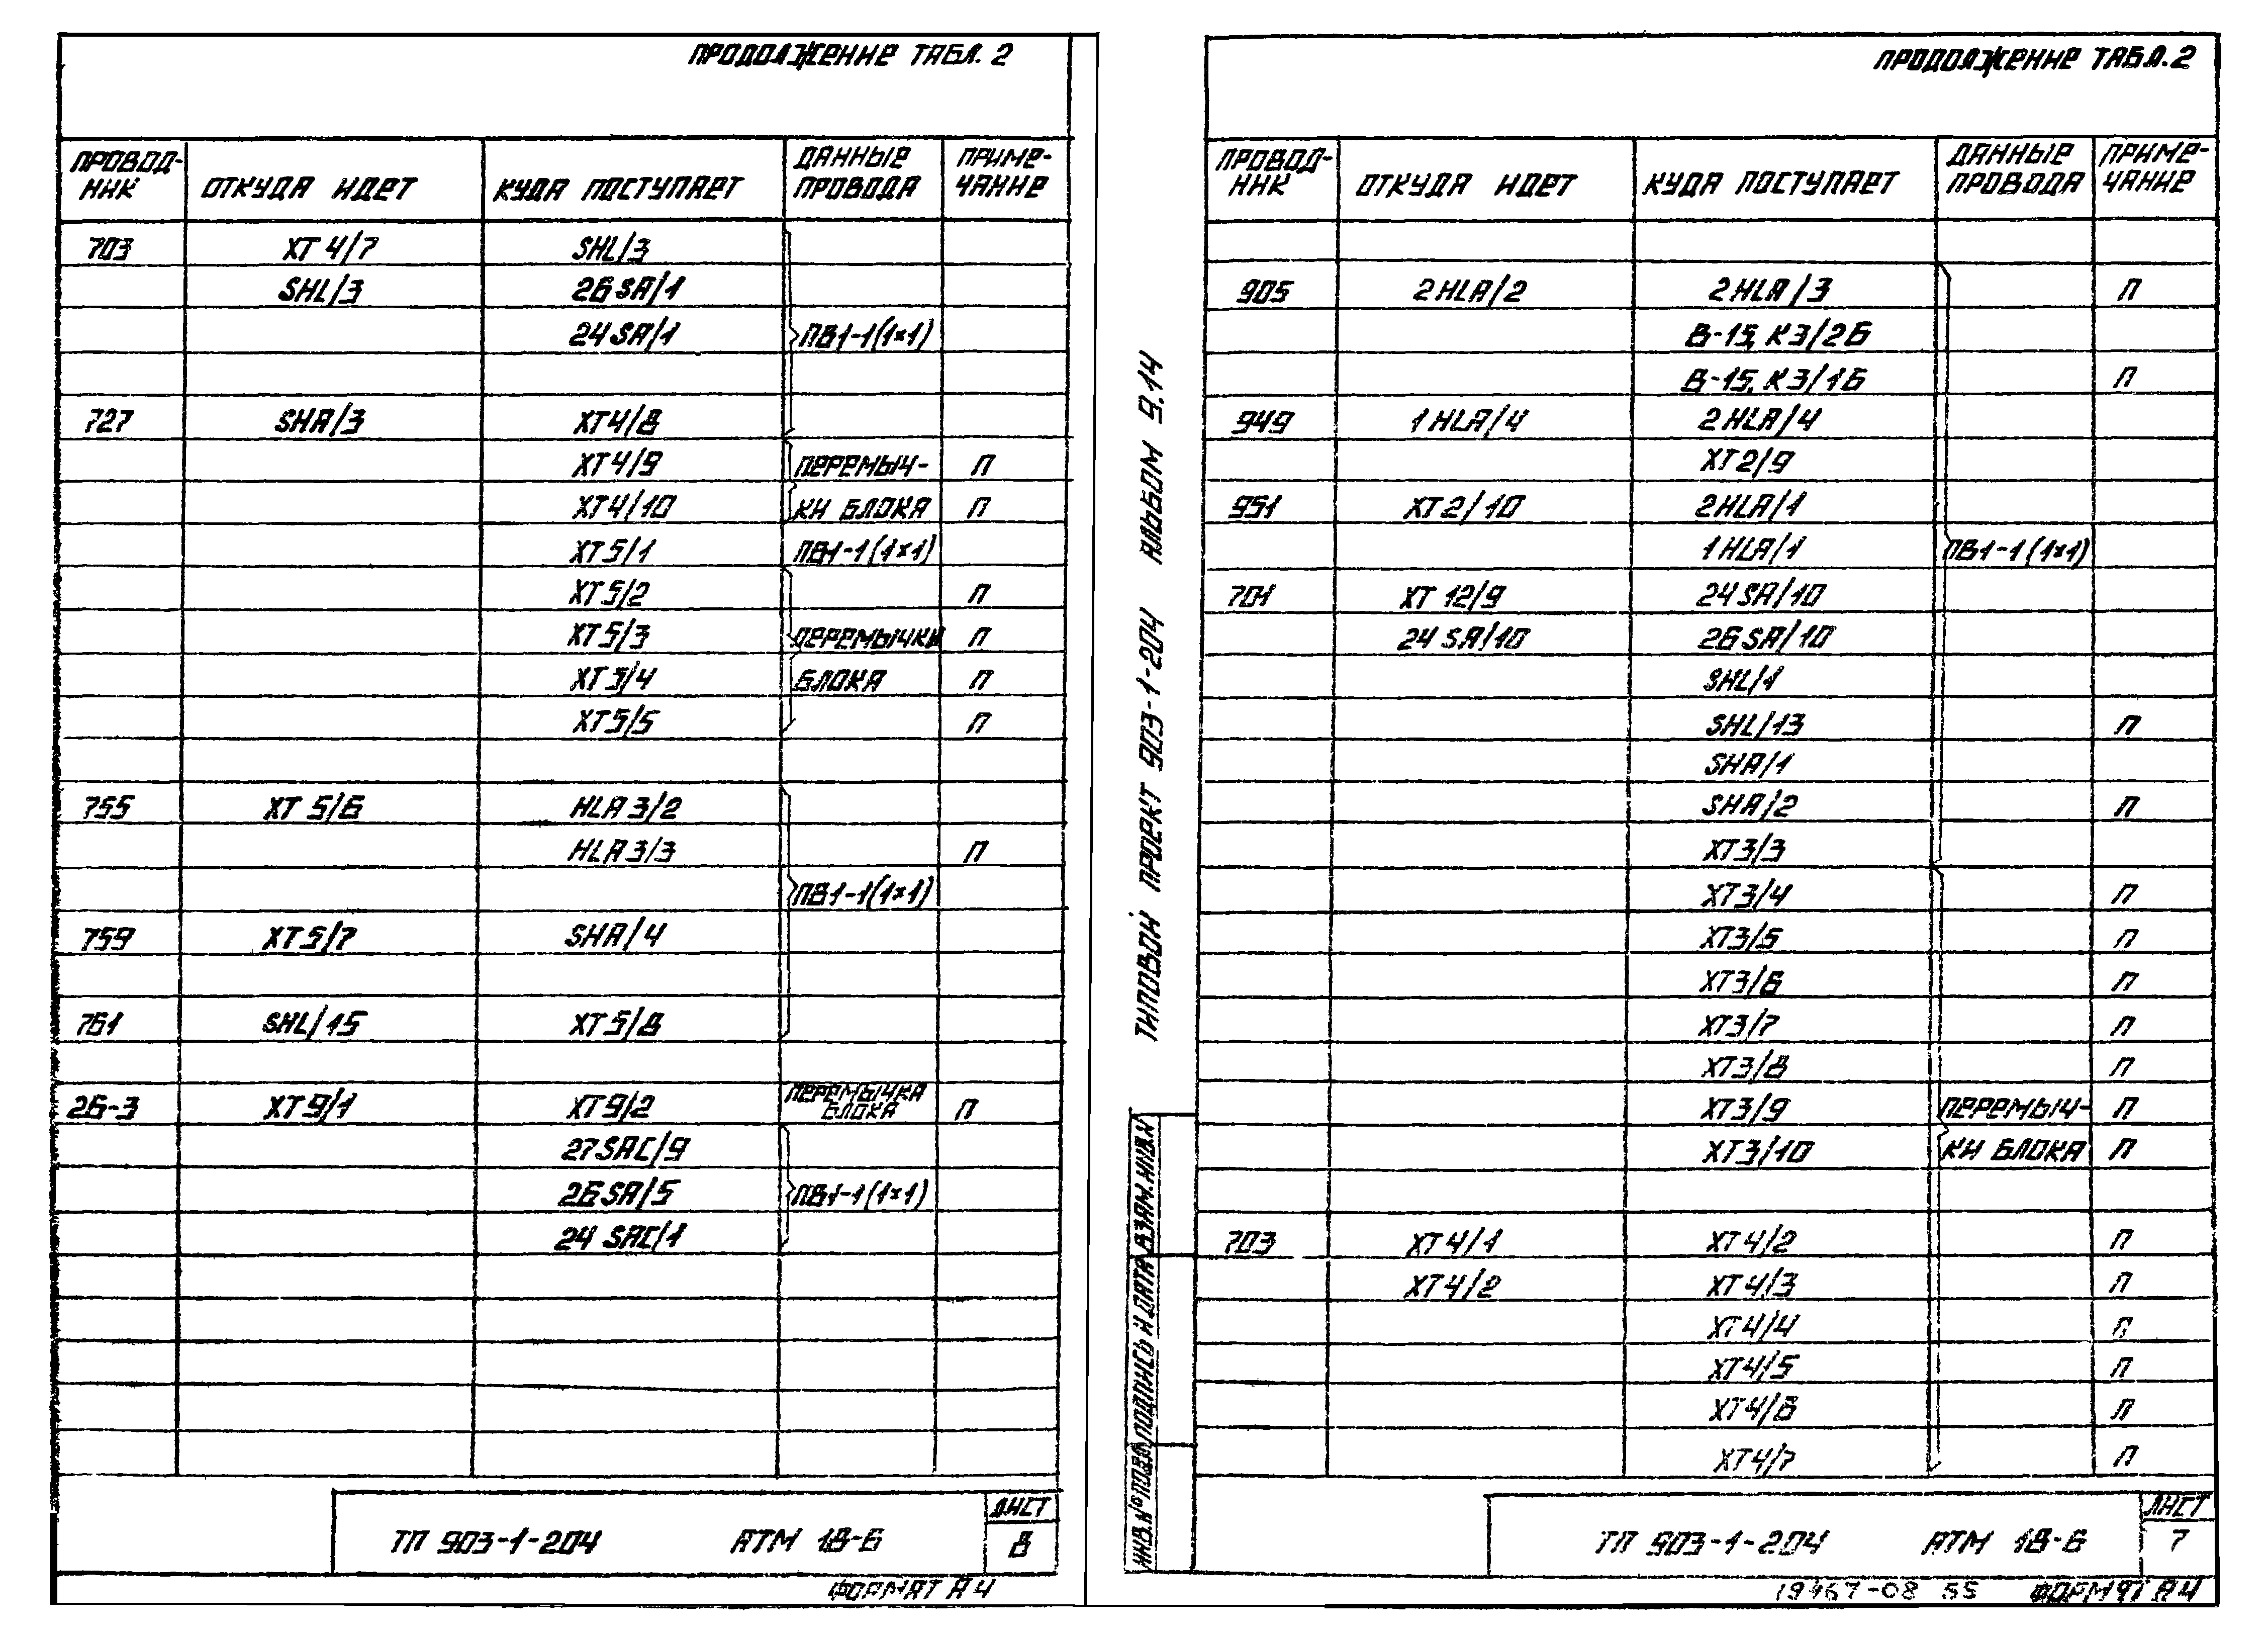 ПРОДОЛЖЕНИЕ ТАБЛ. 2
ПРОВОД-НИК ОТКУДА ИДЕТ КУДА ПОСТУПАЕТ ДАННЫЕ ПРОВОДА ПРИМЕ-ЧАНИЕ
703 XT4/7 SHL/3
SHL/3 26SA/1
24SA/1 ПВ1-1(1×1)
727 SHA/3 XT4/8
XT4/9 ПЕРЕМЫЧ- П
XT4/10 КИ БЛОКА П
XT5/1 ПВ1-1(1×1)
XT5/2 П
XT5/3 ПЕРЕМЫЧКИ П
XT3/4 БЛОКА П
XT5/5 П
755 XT5/6 HLA3/2
HLA3/3 П
ПВ1-1(1×1)
759 XT5/7 SHA/4
761 SHL/15 XT5/8
26-3 XT9/1 XT9/2 ПЕРЕМЫЧКА БЛОКА П
27SAC/9
26SA/5 ПВ1-1(1×1)
24 SAC/1
ТП 903-1-204 АТМ 18-6 ЛИСТ 8
ФОРМАТ А4
ТИПОВОЙ ПРОЕКТ 903-1-204 АЛЬБОМ 9.14
ИНВ.№ ПОДЛ. ПОДПИСЬ И ДАТА ВЗАМ.ИНВ.№
ПРОДОЛЖЕНИЕ ТАБЛ.2
ПРОВОД-НИК ОТКУДА ИДЕТ КУДА ПОСТУПАЕТ ДАННЫЕ ПРОВОДА ПРИМЕ-ЧАНИЕ
905 2HLA/2 2HLA/3 П
В-15, К3/2Б
В-15, К3/1Б П
949 1HLA/4 2HLA/4
XT2/9
951 XT2/10 2HLA/1
1HLA/1 ПВ1-1(1×1)
701 XT12/9 24SA/10
24SA/10 26SA/10
SHL/1
SHL/13 П
SHA/1
SHA/2 П
XT3/3
XT3/4 П
XT3/5 П
XT3/6 П
XT3/7 П
XT3/8 П
XT3/9 ПЕРЕМЫЧ- П
XT3/10 КИ БЛОКА П
703 XT4/1 XT4/2 П
XT4/2 XT4/3 П
XT4/4 П
XT4/5 П
XT4/6 П
XT4/7 П
ТП 903-1-204 АТМ 18-6 ЛИСТ 7
19467-08 55 ФОРМАТ А4